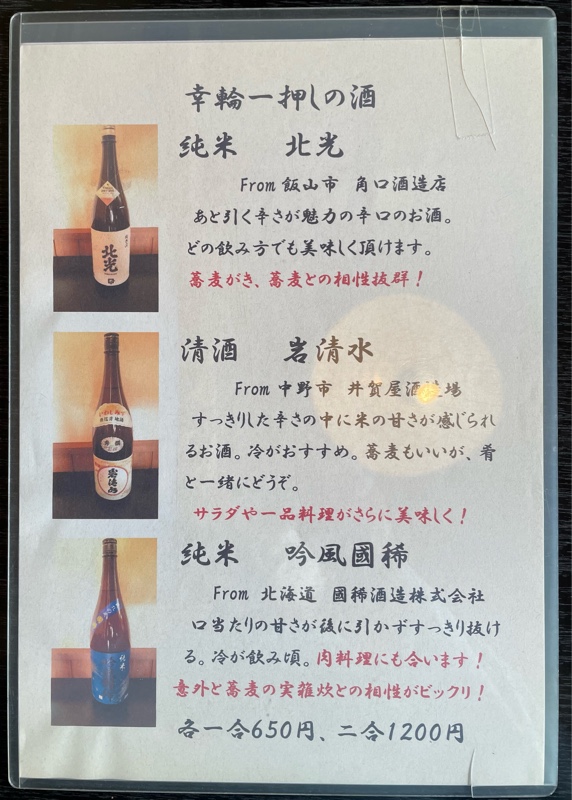 幸輪一押しの酒
純米 北光
From 飯山市 角口酒造店
あと引く辛さが魅力の辛口のお酒。
どの飲み方でも美味しく頂けます。
蕎麦がき、蕎麦との相性抜群！
北光
清酒 岩清水
From 中野市 井賀屋酒造場
すっきりした辛さの中に米の甘さが感じられ
るお酒。冷がおすすめ。蕎麦もいいが、肴
と一緒にどうぞ。
サラダや一品料理がさらに美味しく！
岩清水
純米 吟風國稀
From 北海道 國稀酒造株式会社
口当たりの甘さが後に引かずすっきり抜け
る。冷が飲み頃。肉料理にも合います！
意外と蕎麦の実雑炊との相性がビックリ！
各一合650円、二合1200円